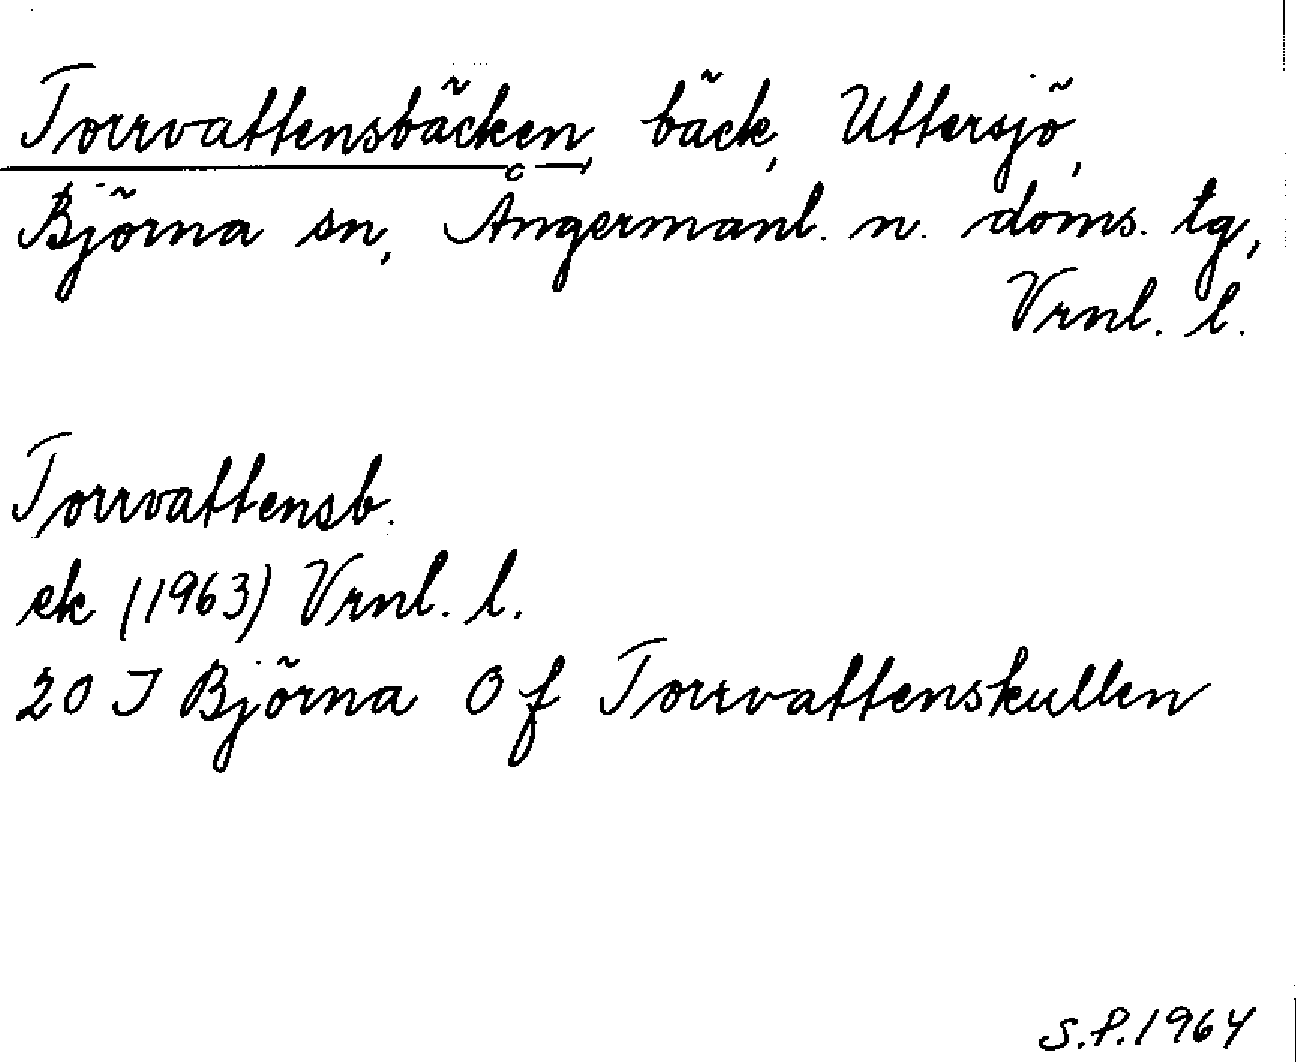 Torrvattensbäcken, bäck, Uttersjö,
Björna sn, Ångermanl. n. doms. tg,
Vrnl. l.
Torrvattensb.
ek (1963) Vrnl. l.
20 I Björna 0 f Torrvattenskullen
S.P. 1964